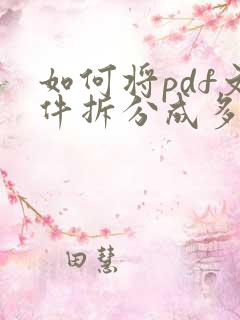 如何将pdf文
件拆分成多
田慧